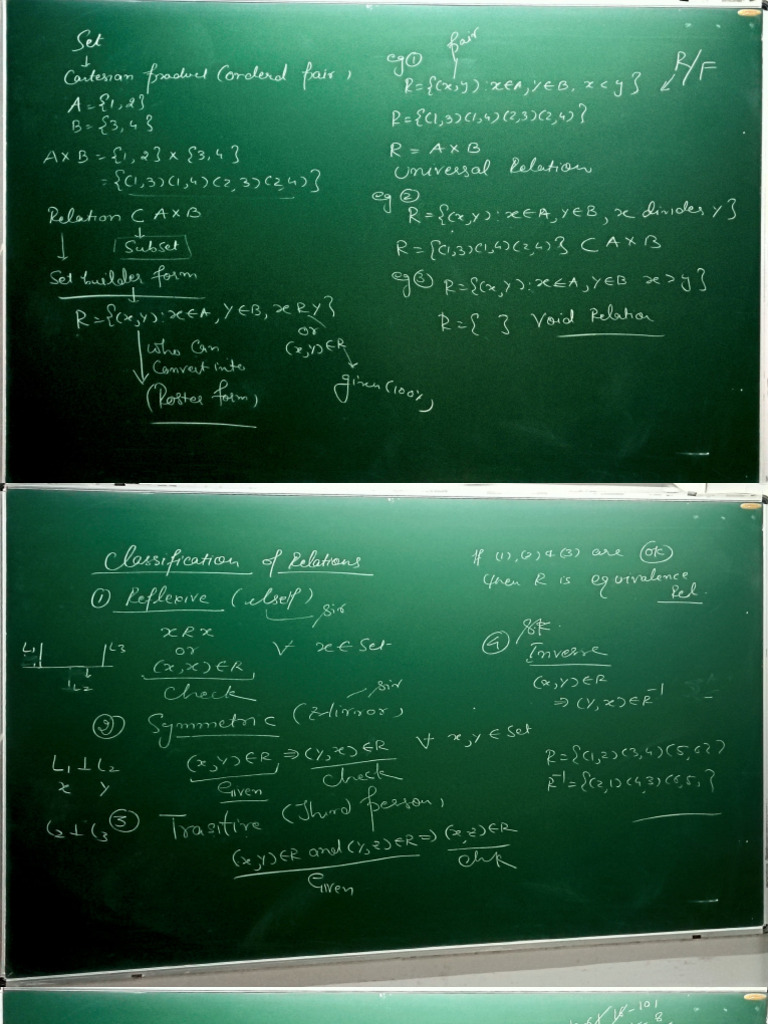 Set
↓
Cartesian product (ordered pair)
A = {1, 2}
B = {3, 4}
A × B = {1, 2} × {3, 4}
= {(1,3)(1,4)(2,3)(2,4)}
Relation ⊂ A×B
Subset
Set builder form
R = {(x,y) : x∈A, y∈B, x R y}
or
(x,y)∈R
who can
convert into
given (100%)
(Roster form)
pair
eg ①
R/F
R = {(x,y) : x∈A, y∈B, x < y}
R = {(1,3)(1,4)(2,3)(2,4)}
R = A×B
Universal Relation
eg ②
R = {(x,y) : x∈A, y∈B, x divides y}
R = {(1,3)(1,4)(2,4)} ⊂ A×B
eg ③ R = {(x,y) : x∈A, y∈B x > y}
R = { } Void Relation
Classification of Relations
① Reflexive (itself)
Sir
x R x
or
∀ x ∈ Set
(x,x)∈R
Check
L1 L3
L2
② Symmetric (Mirror)
Sir
(x,y)∈R ⇒ (y,x)∈R ∀ x,y ∈ Set
Given
Check
L1 ⊥ L2
x y
L2 ⊥ L3
③ Trasitive (Third person)
(x,y)∈R and (y,z)∈R ⇒ (x,z)∈R
Given
Chk
If (1), (2) & (3) are OK
then R is equivalence
Rel.
④
Inverse
(x,y)∈R
⇒ (y,x)∈R⁻¹
R = {(1,2)(3,4)(5,6)}
R⁻¹ = {(2,1)(4,3)(6,5)}
18-101
8